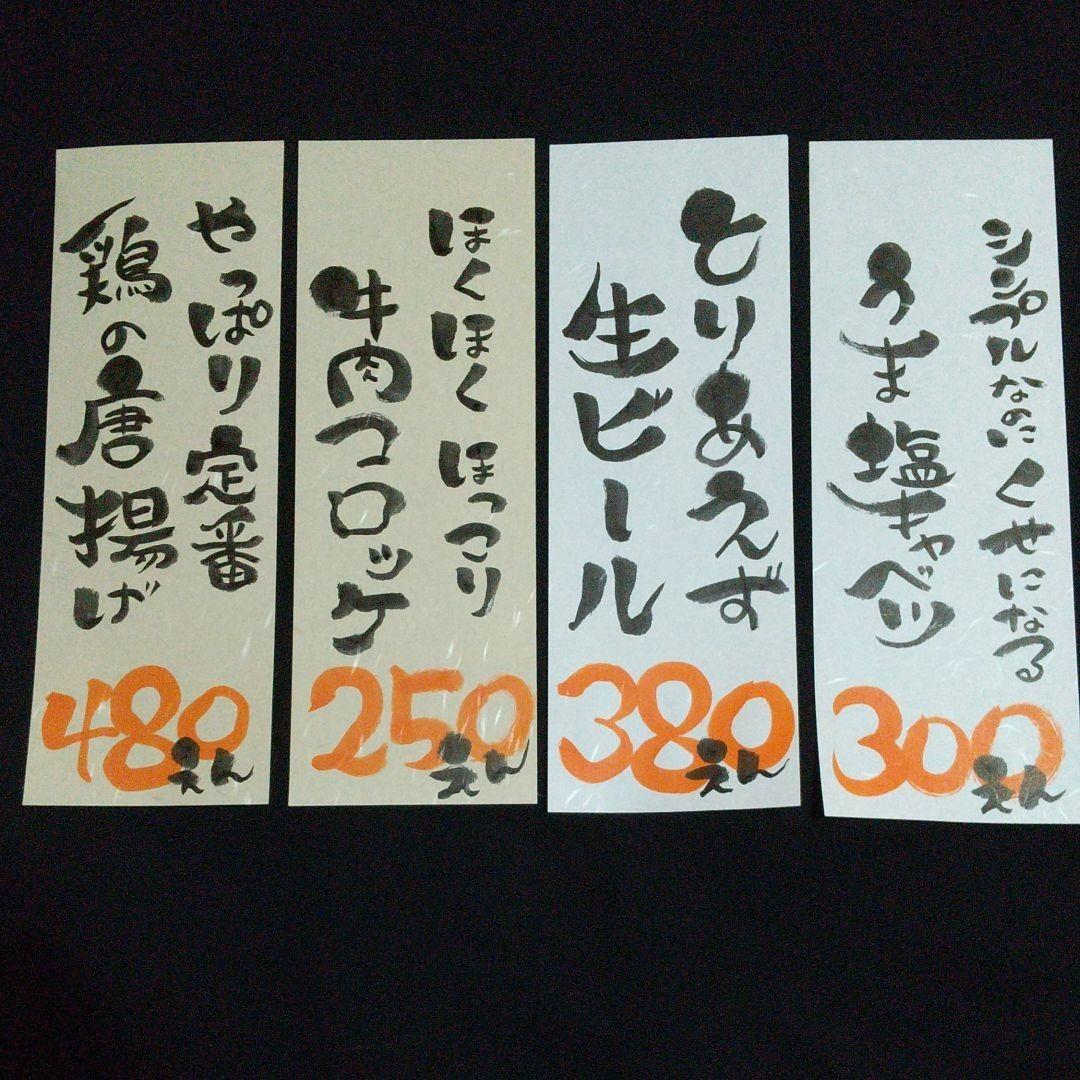 シンプルなのにくせになる
うま塩キャベツ
300えん
とりあえず
生ビール
380えん
ほくほくほっこり
牛肉コロッケ
250えん
やっぱり定番
鶏の唐揚げ
480えん